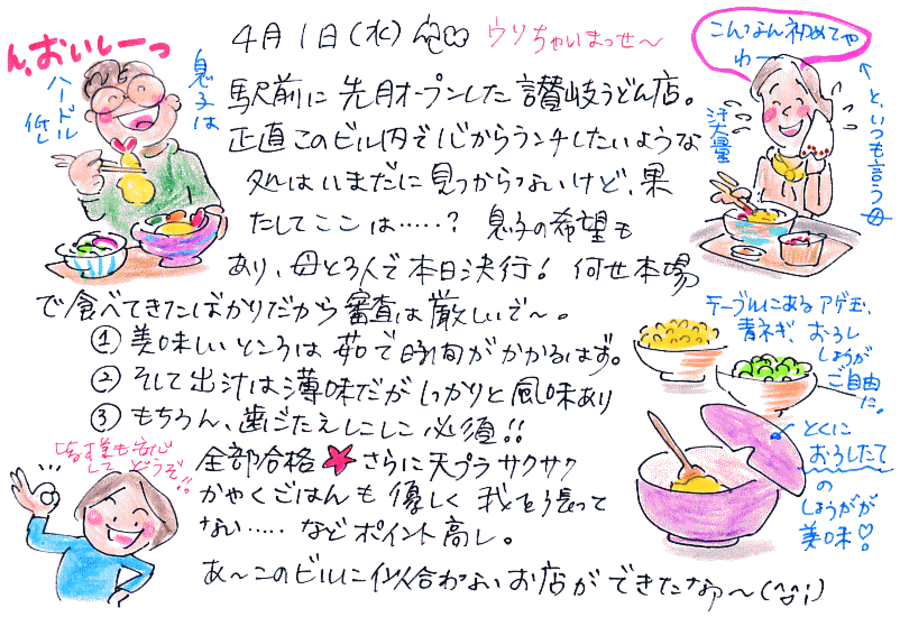 4月1日(水) ウソちゃいまっせ〜
駅前に先月オープンした讃岐うどん店。
正直このビル内で心からランチしたいような
処はいまだに見つからないけど、果
たしてここは……? 息子の希望も
あり、母と3人で本日決行! 何せ本場
で食べてきたばかりだから審査は厳しいで〜。
① 美味しいところは茹で時間がかかるはず。
② そして出汁は薄味だがしっかりと風味あり
③ もちろん、歯ごたえしこしこ必須!!
全部合格★さらに天プラサクサク
かやくごはんも優しく我を張って
ない…… などポイント高し。
あ〜このビルに似合わないお店ができたなァ〜(^^;)
ん、おいしーっ
息子は
ハードル
低し
こんなん初めてや
わー
と、いつも言う母
汗大量
テーブルにあるアゲ玉、
青ネギ、おろし
しょうが
ご自由
に。
とくに
おろしたて
の
しょうがが
美味♡!
安心
して どうぞ!!